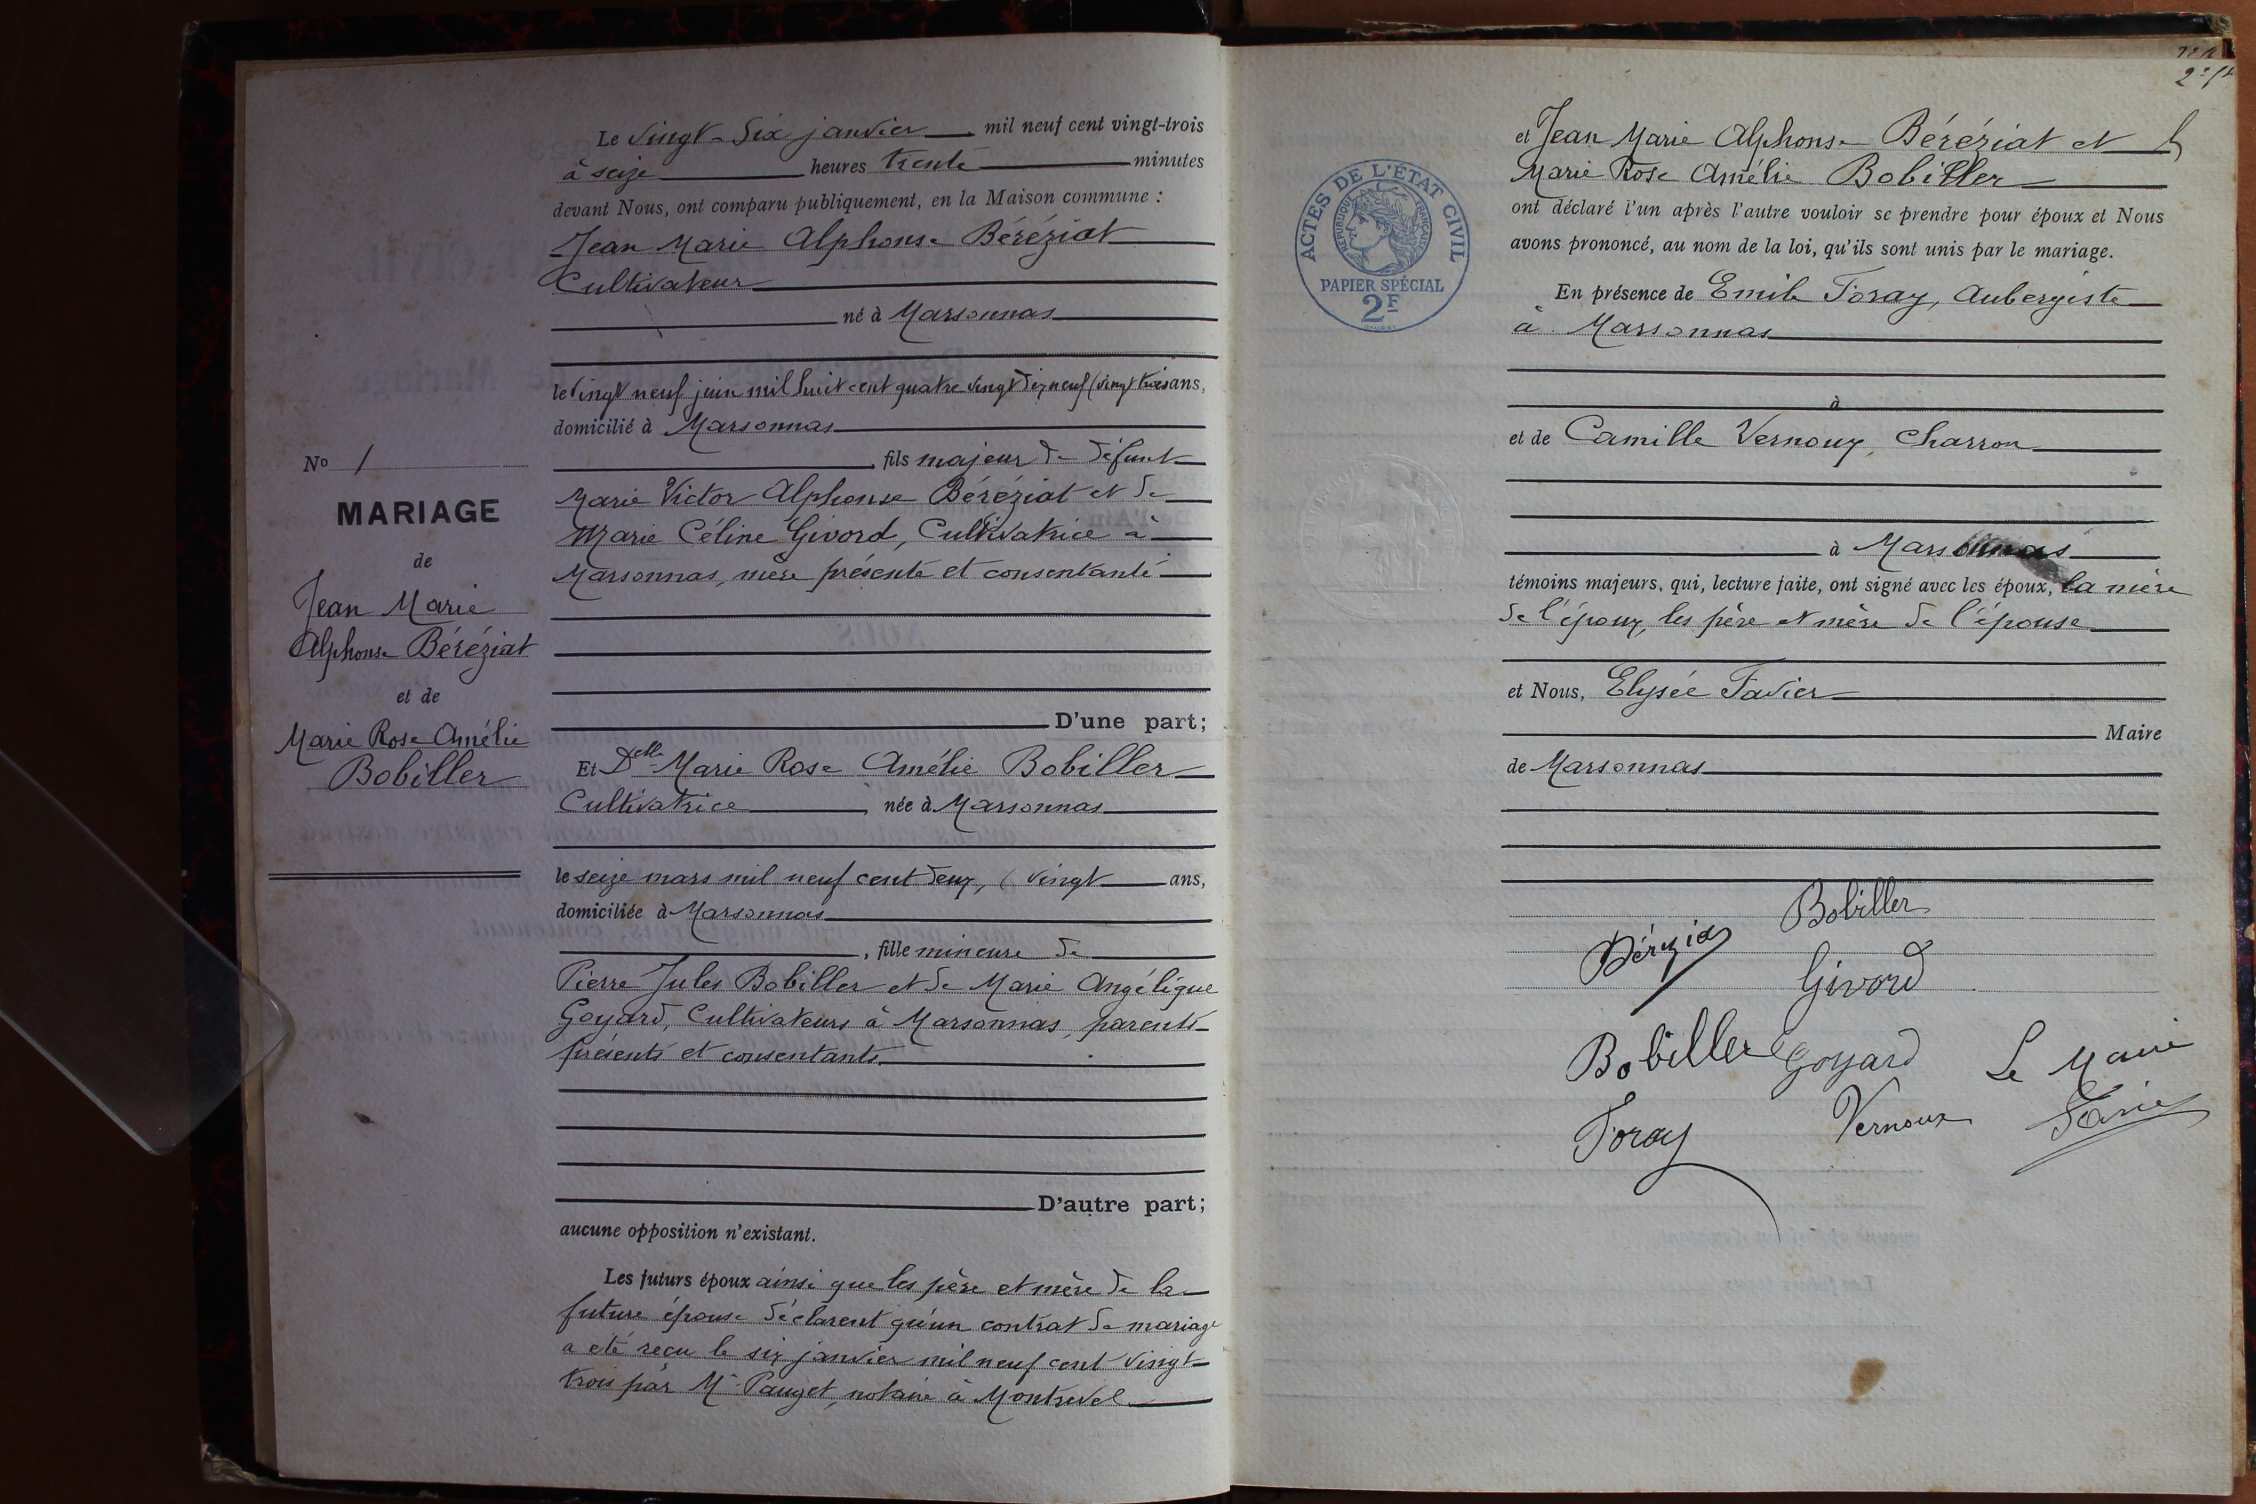 Le vingt-six janvier mil neuf cent vingt-trois
à seize heures trente minutes
devant Nous, ont comparu publiquement, en la Maison commune :
Jean Marie Alphonse Béréziat
Cultivateur
né à Marsonnas
le vingt neuf juin mil huit cent quatre vingt dix neuf (vingt trois ans,
domicilié à Marsonnas
fils majeur de défunt
Marie Victor Alphonse Béréziat et de
Marie Céline Givord, Cultivatrice à
Marsonnas, mère présente et consentante
D'une part;
Et Delle Marie Rose Amélie Bobiller
Cultivatrice, née à Marsonnas
le seize mars mil neuf cent deux, (vingt ans,
domiciliée à Marsonnas
, fille mineure de
Pierre Jules Bobiller et de Marie Angélique
Goyard, Cultivateurs à Marsonnas, parents
présents et consentants
D'autre part;
aucune opposition n'existant.
Les futurs époux ainsi que les père et mère de la
future épouse déclarent qu'un contrat de mariage
a été reçu le six janvier mil neuf cent vingt
trois par Me Pauget, notaire à Montrevel
No 1
MARIAGE
de
Jean Marie
Alphonse Béréziat
et de
Marie Rose Amélie
Bobiller
ACTES DE L'ÉTAT CIVIL
RÉPUBLIQUE FRANÇAISE
PAPIER SPÉCIAL
2F
et Jean Marie Alphonse Béréziat et
Marie Rose Amélie Bobiller
ont déclaré l'un après l'autre vouloir se prendre pour époux et Nous
avons prononcé, au nom de la loi, qu'ils sont unis par le mariage.
En présence de Emile Foray, Aubergiste
à Marsonnas
à
et de Camille Vernoux, Charron
à Marsonnas
témoins majeurs, qui, lecture faite, ont signé avec les époux, la mère
de l'époux, les père et mère de l'épouse
et Nous, Elysée Favier
Maire
de Marsonnas
Bobiller
Béréziat
Givord
Bobiller Goyard Le Maire
Foray Vernoux Favier